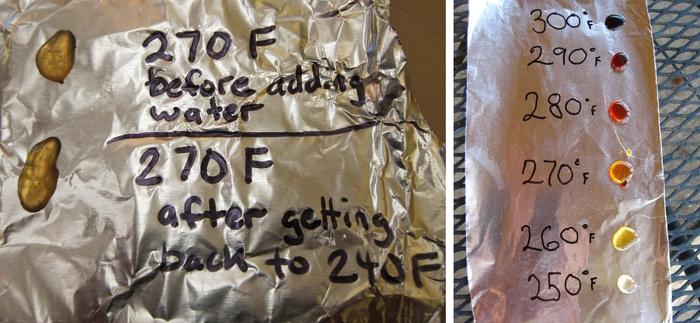 270 F
before adding
water
270 F
after getting
back to 240 F
300°F
290°F
280°F
270°F
260°F
250°F